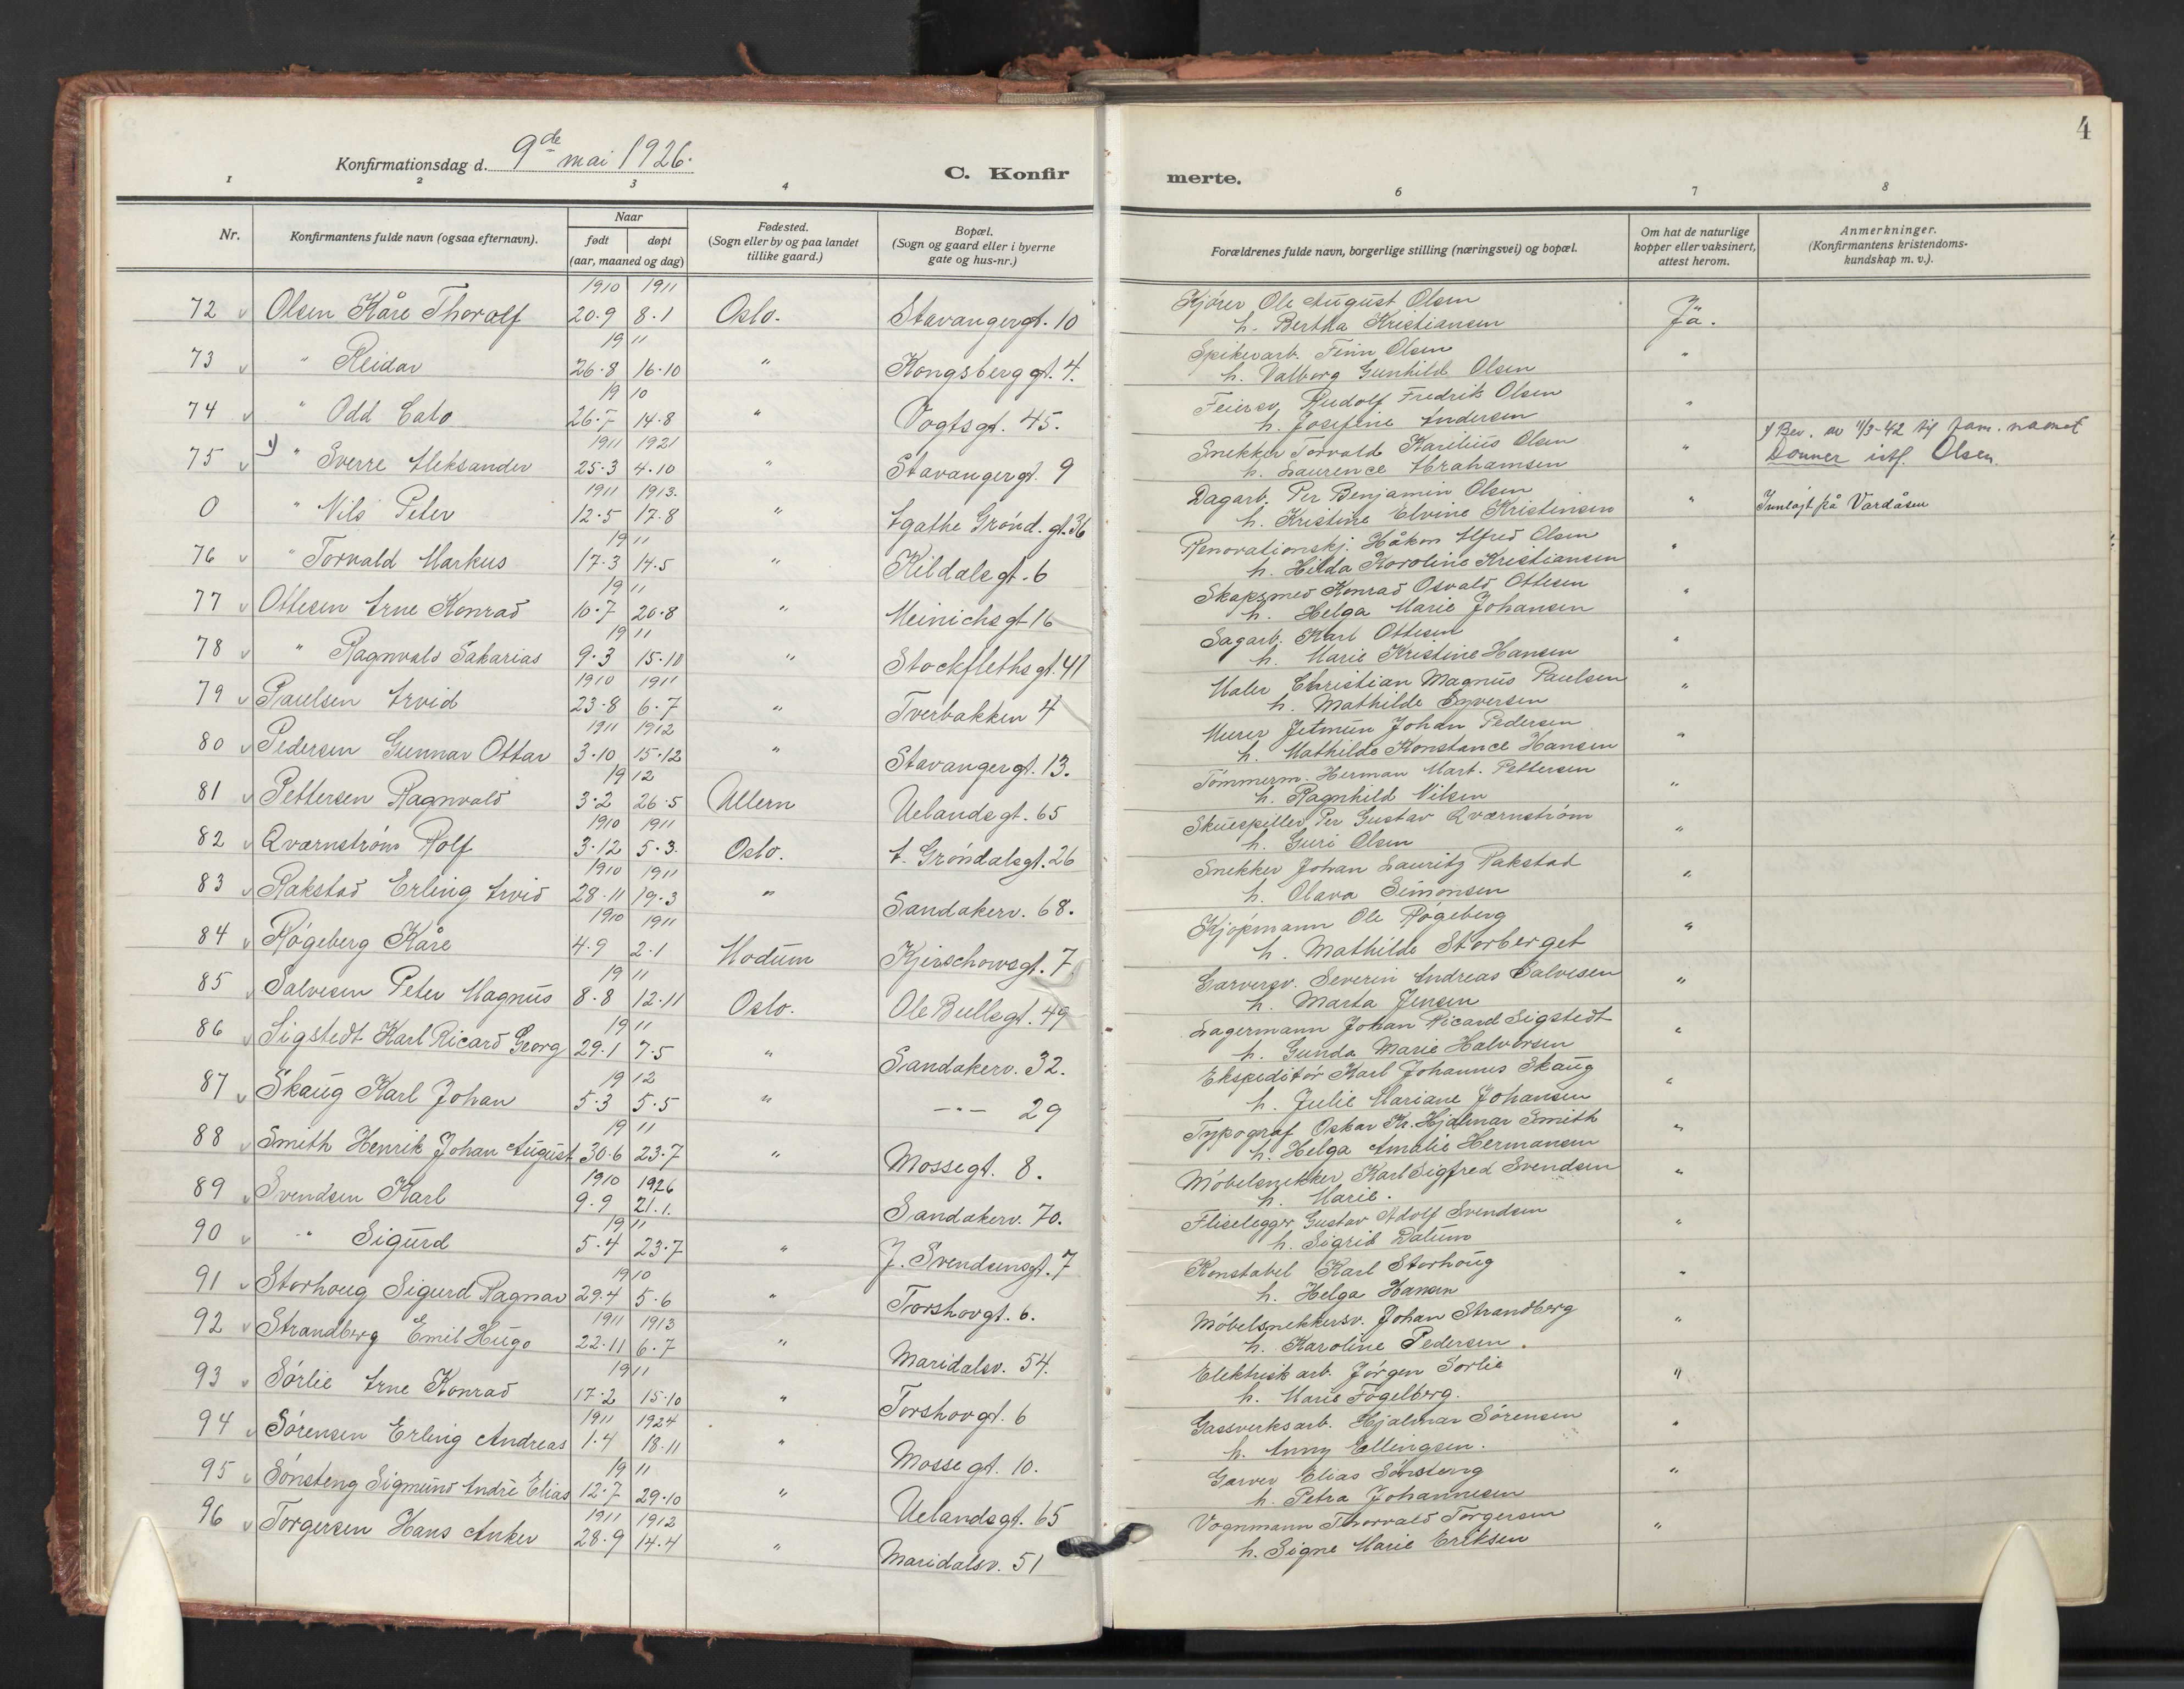 4
Konfirmationsdag d. 9de mai 1926.
C. Konfirmerte.
1 2 3 4 6 7 8
Nr. Konfirmantens fulde navn (ogsaa efternavn). Naar født døpt (aar, maaned og dag) Fødested. (Sogn eller by og paa landet tillike gaard.) Bopæl. (Sogn og gaard eller i byerne gate og hus-nr.) Forældrenes fulde navn, borgerlige stilling (næringsvei) og bopæl. Om hat de naturlige kopper eller vaksinert, attest herom. Anmerkninger. (Konfirmantens kristendoms-kundskap m. v.).
1910 1911
72 v Olsen Kåre Thoralf 20.9 8.1 Oslo. Stavangergt. 10 Kjører Ole August Olsen Ja.
h. Bertha Kristiansen
1911
73 v " Reidar 26.8 16.10 " Kongsberggt. 4. Spikerarb. Finn Olsen "
h. Valborg Gunhild Olsen
1910
74 v " Odd Cato 26.5 14.8 " Vogtsgt. 45. Feiersv. Rudolf Fredrik Olsen "
h. Josefine Andersen
1911 1921
75 v 1) " Sverre Aleksander 25.3 4.10 " Stavangergt. 9 Snekker Torvald Karelius Olsen " 1) Bev. av 11/3-42 til fam. navnet
h. Laurence Abrahamsen Donner istf. Olsen.
1911 1913.
0 " Nils Peter 12.5 17.8 " Agathe Grønd. gt. 36 Dagarb. Per Benjamin Olsen " Innlagt på Vardåsen
h. Kristine Elvine Kristensen
1911
76 v " Torvald Markus 17.3 14.5 " Kildalsgt. 6 Renovationskj. Håkon Alfred Olsen "
h. Hilda Karoline Kristiansen
1911
77 v Ottesen Arne Konrad 10.7 20.8 " Meinichsgt 16 Skapsmed Konrad Osvald Ottesen "
h. Helga Marie Johansen
1911
78 v " Ragnvald Sakarias 9.3 15.10 " Stockflethsgt. 41 Sagarb. Karl Ottesen "
h. Marie Kristine Hansen
1910 1911
79 v Paulsen Arvid 23.8 6.7 " Tverbakken 4 Maler Christian Magnus Paulsen "
h. Mathilde Syversen
1911 1912
80 v Pedersen Gunnar Ottar 3.10 15.12 " Stavangergt. 13. Murer Jetmun Johan Pedersen "
h. Mathilde Konstance Hansen
1912
81 v Pettersen Ragnvald 3.2 26.5 Ullern Uelandsgt. 65 Tømmerm. Herman Mart. Pettersen "
h. Ragnhild Nilsen
1910 1911
82 v Qvarnstrøm Rolf 3.12 5.3. Oslo. A. Grøndalsgt. 26 Skuespiller Per Gustav Qvarnstrøm "
h. Guri Olsen
1910 1911
83 v Rakstad Erling Arvid 28.11 19.3 " Sandakerv. 68. Snekker Johan Lauritz Rakstad "
h. Olava Simonsen
1910 1911
84 v Røgeberg Kåre 4.9 2.1 Modum Kjerschowsgt. 7 Kjøpmann Ole Røgeberg "
h. Mathilde Storberget
1911
85 v Salvesen Peter Magnus 8.8 12.11 Oslo. Ole Bullsgt. 49 Garversv. Severin Andreas Salvesen "
h. Marta Jensen
1911
86 v Sigstedt Karl Ricard Georg 29.1 7.5 " Sandakerv. 32. Lagermann Johan Ricard Sigstedt "
h. Gunda Marie Halvorsen
1912
87 v Skaug Karl Johan 5.3 5.5 " -"- 29 Ekspeditør Karl Johannes Skaug "
h. Julie Mariane Johansen
1911
88 v Smith Henrik Johan August 30.6 23.7 " Mossegt. 8. Typograf Oskar Kr. Hjalmar Smith "
h. Helga Amalie Hermansen
1910 1926
89 v Svendsen Karl 9.9 21.1. Sandakerv. 70. Møbelsnekker Karl Sigfred Svendsen "
h. Marie.
1911
90 v " Sigurd 5.4 23.7 " J. Svendsensgt. 7 Fliselegger Gustav Adolf Svendsen "
h. Sigrid Dalum
1910
91 v Storhoug Sigurd Ragnar 29.4 5.6 " Torshovgt. 6. Konstabel Karl Storhoug "
h. Helga Hansen
1911 1913
92 v Strandberg Emil Hugo 22.11 6.7 " Maridalsv. 54. Møbelsnekkersv. Johan Strandberg "
h. Karoline Pedersen.
1911
93 v Sørlie Arne Konrad 17.2 15.10 " Torshovgt. 6 Elektrisk arb. Jørgen Sørlie "
h. Marie Fogelberg.
1911 1924
94 v Sørensen Erling Andreas 1.4 18.11 " Mossegt. 10. Gassverksarb. Hjalmar Sørensen "
h. Anny Ellingsen.
1911
95 v Sønsteng Sigmund André Elias 12.7 29.10 " Uelandsgt. 65 Garver Elias Sønsteng "
h. Petra Johannesen
1911 1912
96 v Torgersen Hans Anker 28.9 14.4 " Maridalsv. 51 Vognmann Thorvald Torgersen "
h. Signe Marie Eriksen